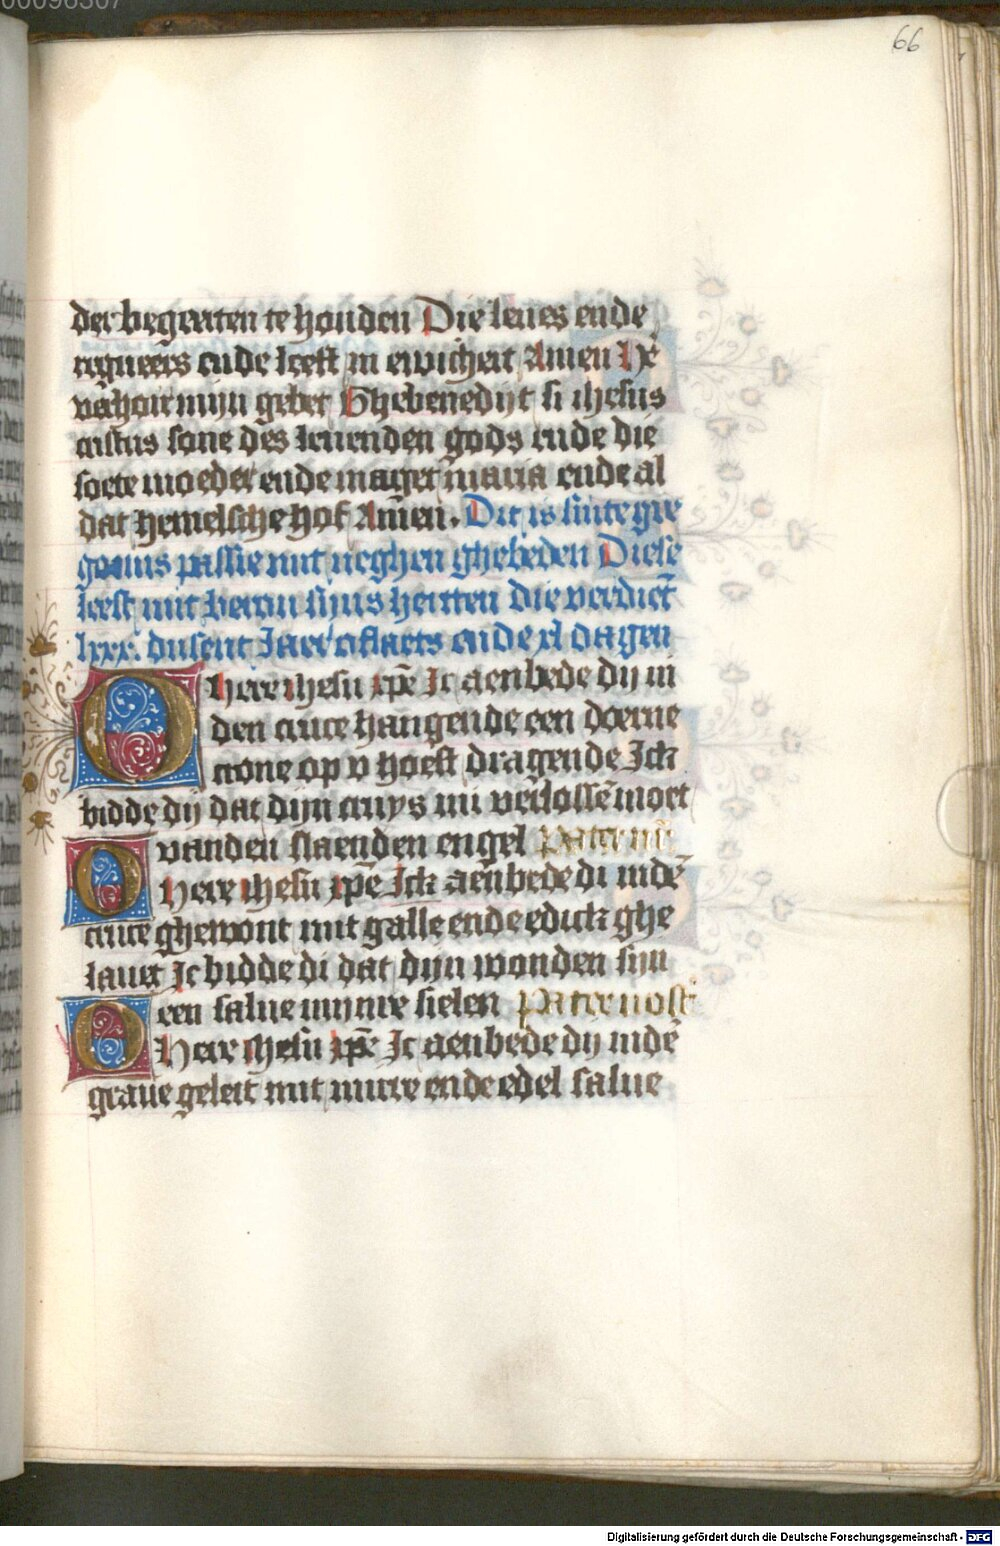 66
der begeerten te houden Die leues ende
regneers ende leeft in ewicheit Amen He
verhoir mijn gebet Ghebenedijt si ihesus
cristus sone des leuenden gods ende die
soete moeder ende maget maria ende al
dat hemelsche hof Amen. Dit is sinte gre
gorius passie mit neghen ghebeden Diese
leest mit berou sijns herten die verdiet
lxxx. dusent Jaer aflaets ende xl dagen
O here ihesu xpe Ic aenbede dij in
den cruce hangende een doerne
crone op v hoeft dragende Ick
bidde dij dat dijn cruys mi verlosse mort
vanden slaenden engel Pater nr
O here ihesu xpe Ick aenbede di inde
cruce ghewont mit galle ende edick ghe
lauet Ic bidde di dat dijn wonden sijn
een salue mijnre sielen Pater nost
O here ihesu xpe Ic aenbede dij inde
graue geleit mit mirre ende edel salue
Digitalisierung gefördert durch die Deutsche Forschungsgemeinschaft - DFG